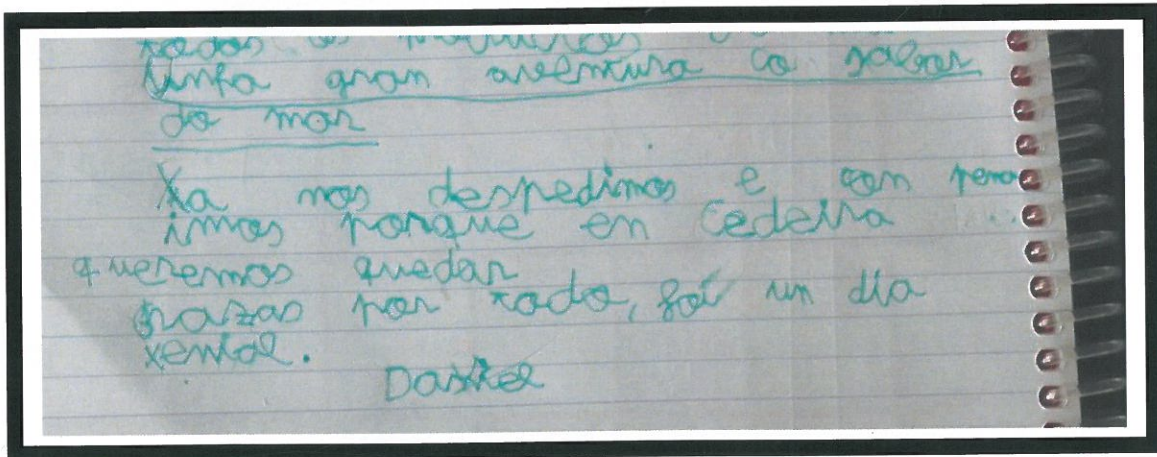 todos os
Unha gran aventura co sabor
do mar
Xa nos despedimos e con pena
imos porque en Cedeira
queremos quedar
grazas por todo, foi un día
xenial.